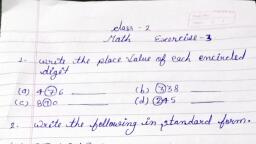 class - 2
Math Exercise - 3
1- write the place value of each encircled
digit
(a) 4⑦6 ______ (b) ③38 ______
(c) 8⑨0 ______ (d) ②45 ______
2. write the following in standard form.